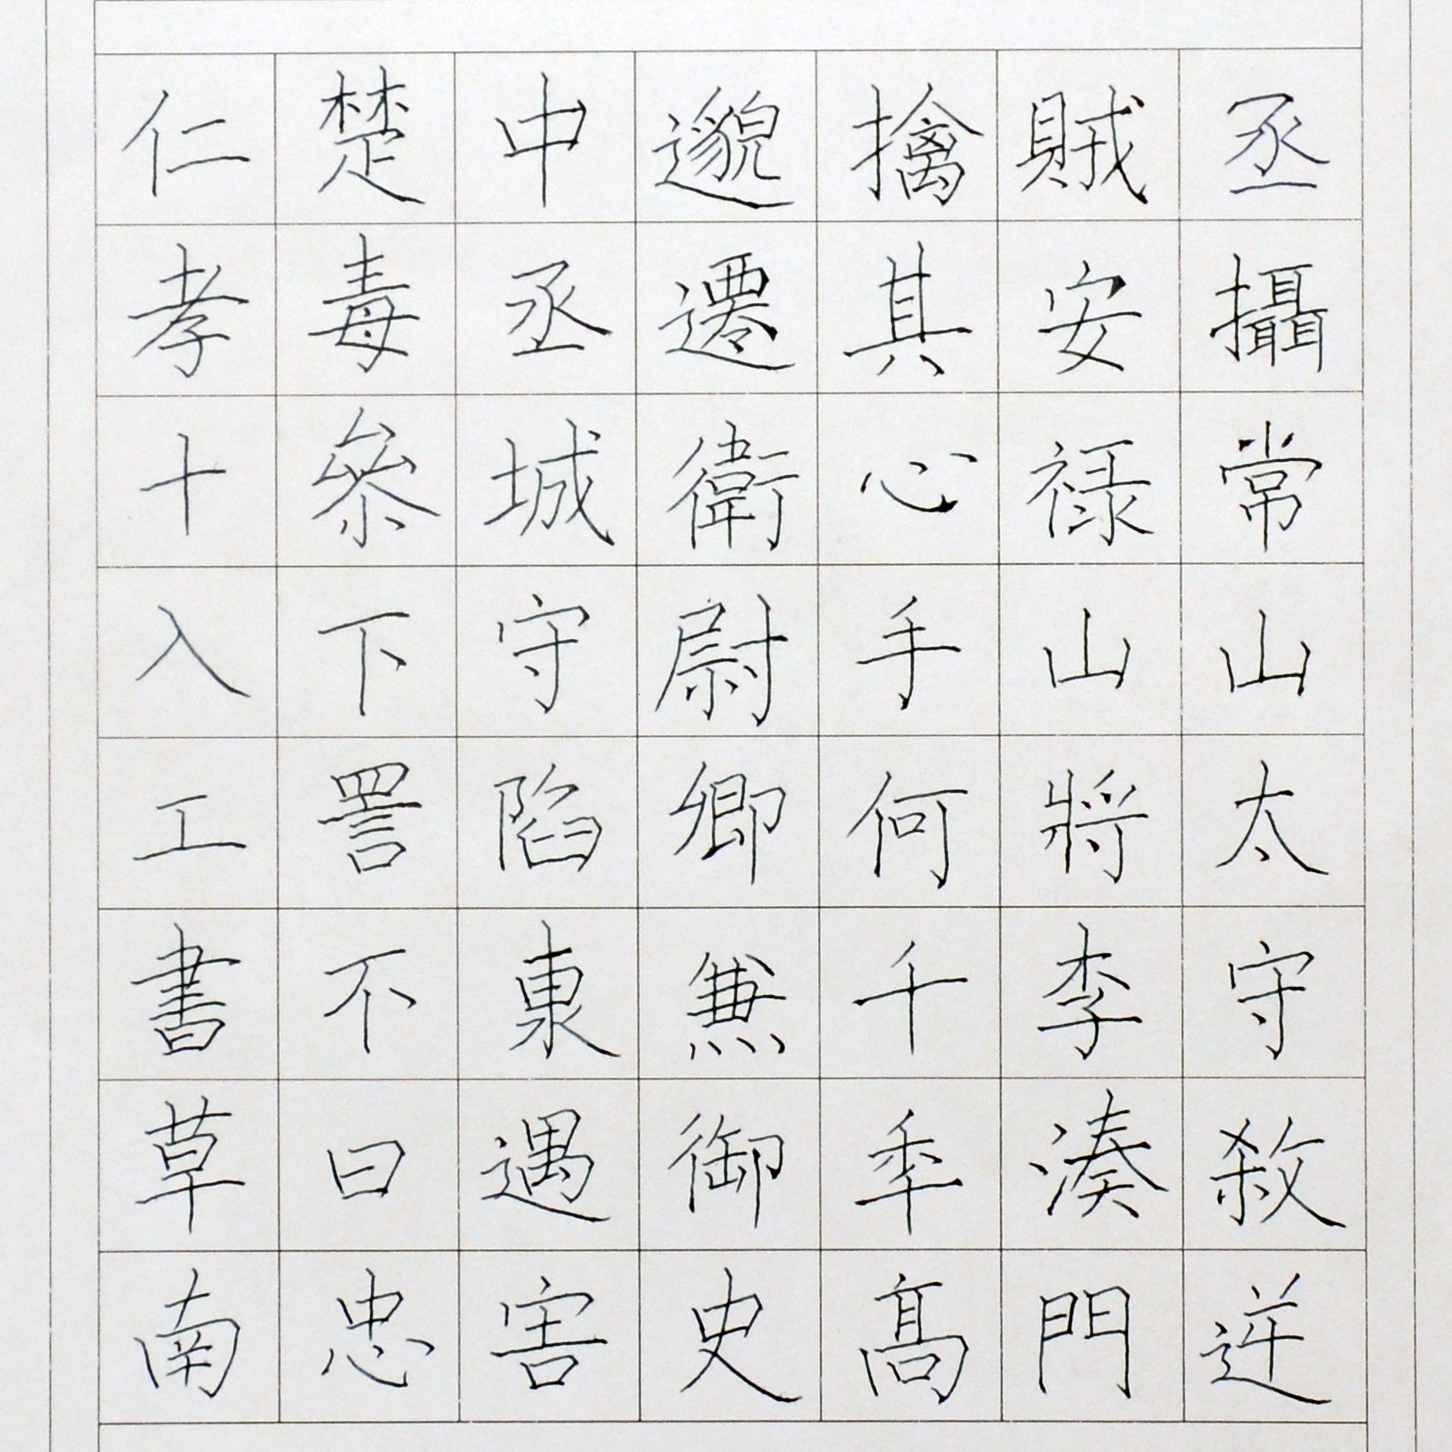 丞攝常山太守殺逆
賊安禄山將李湊門
擒其心手何千年髙
邈遷衛尉卿兼御史
中丞城守陷東遇害
楚毒參下詈不曰忠
仁孝十入工書草南